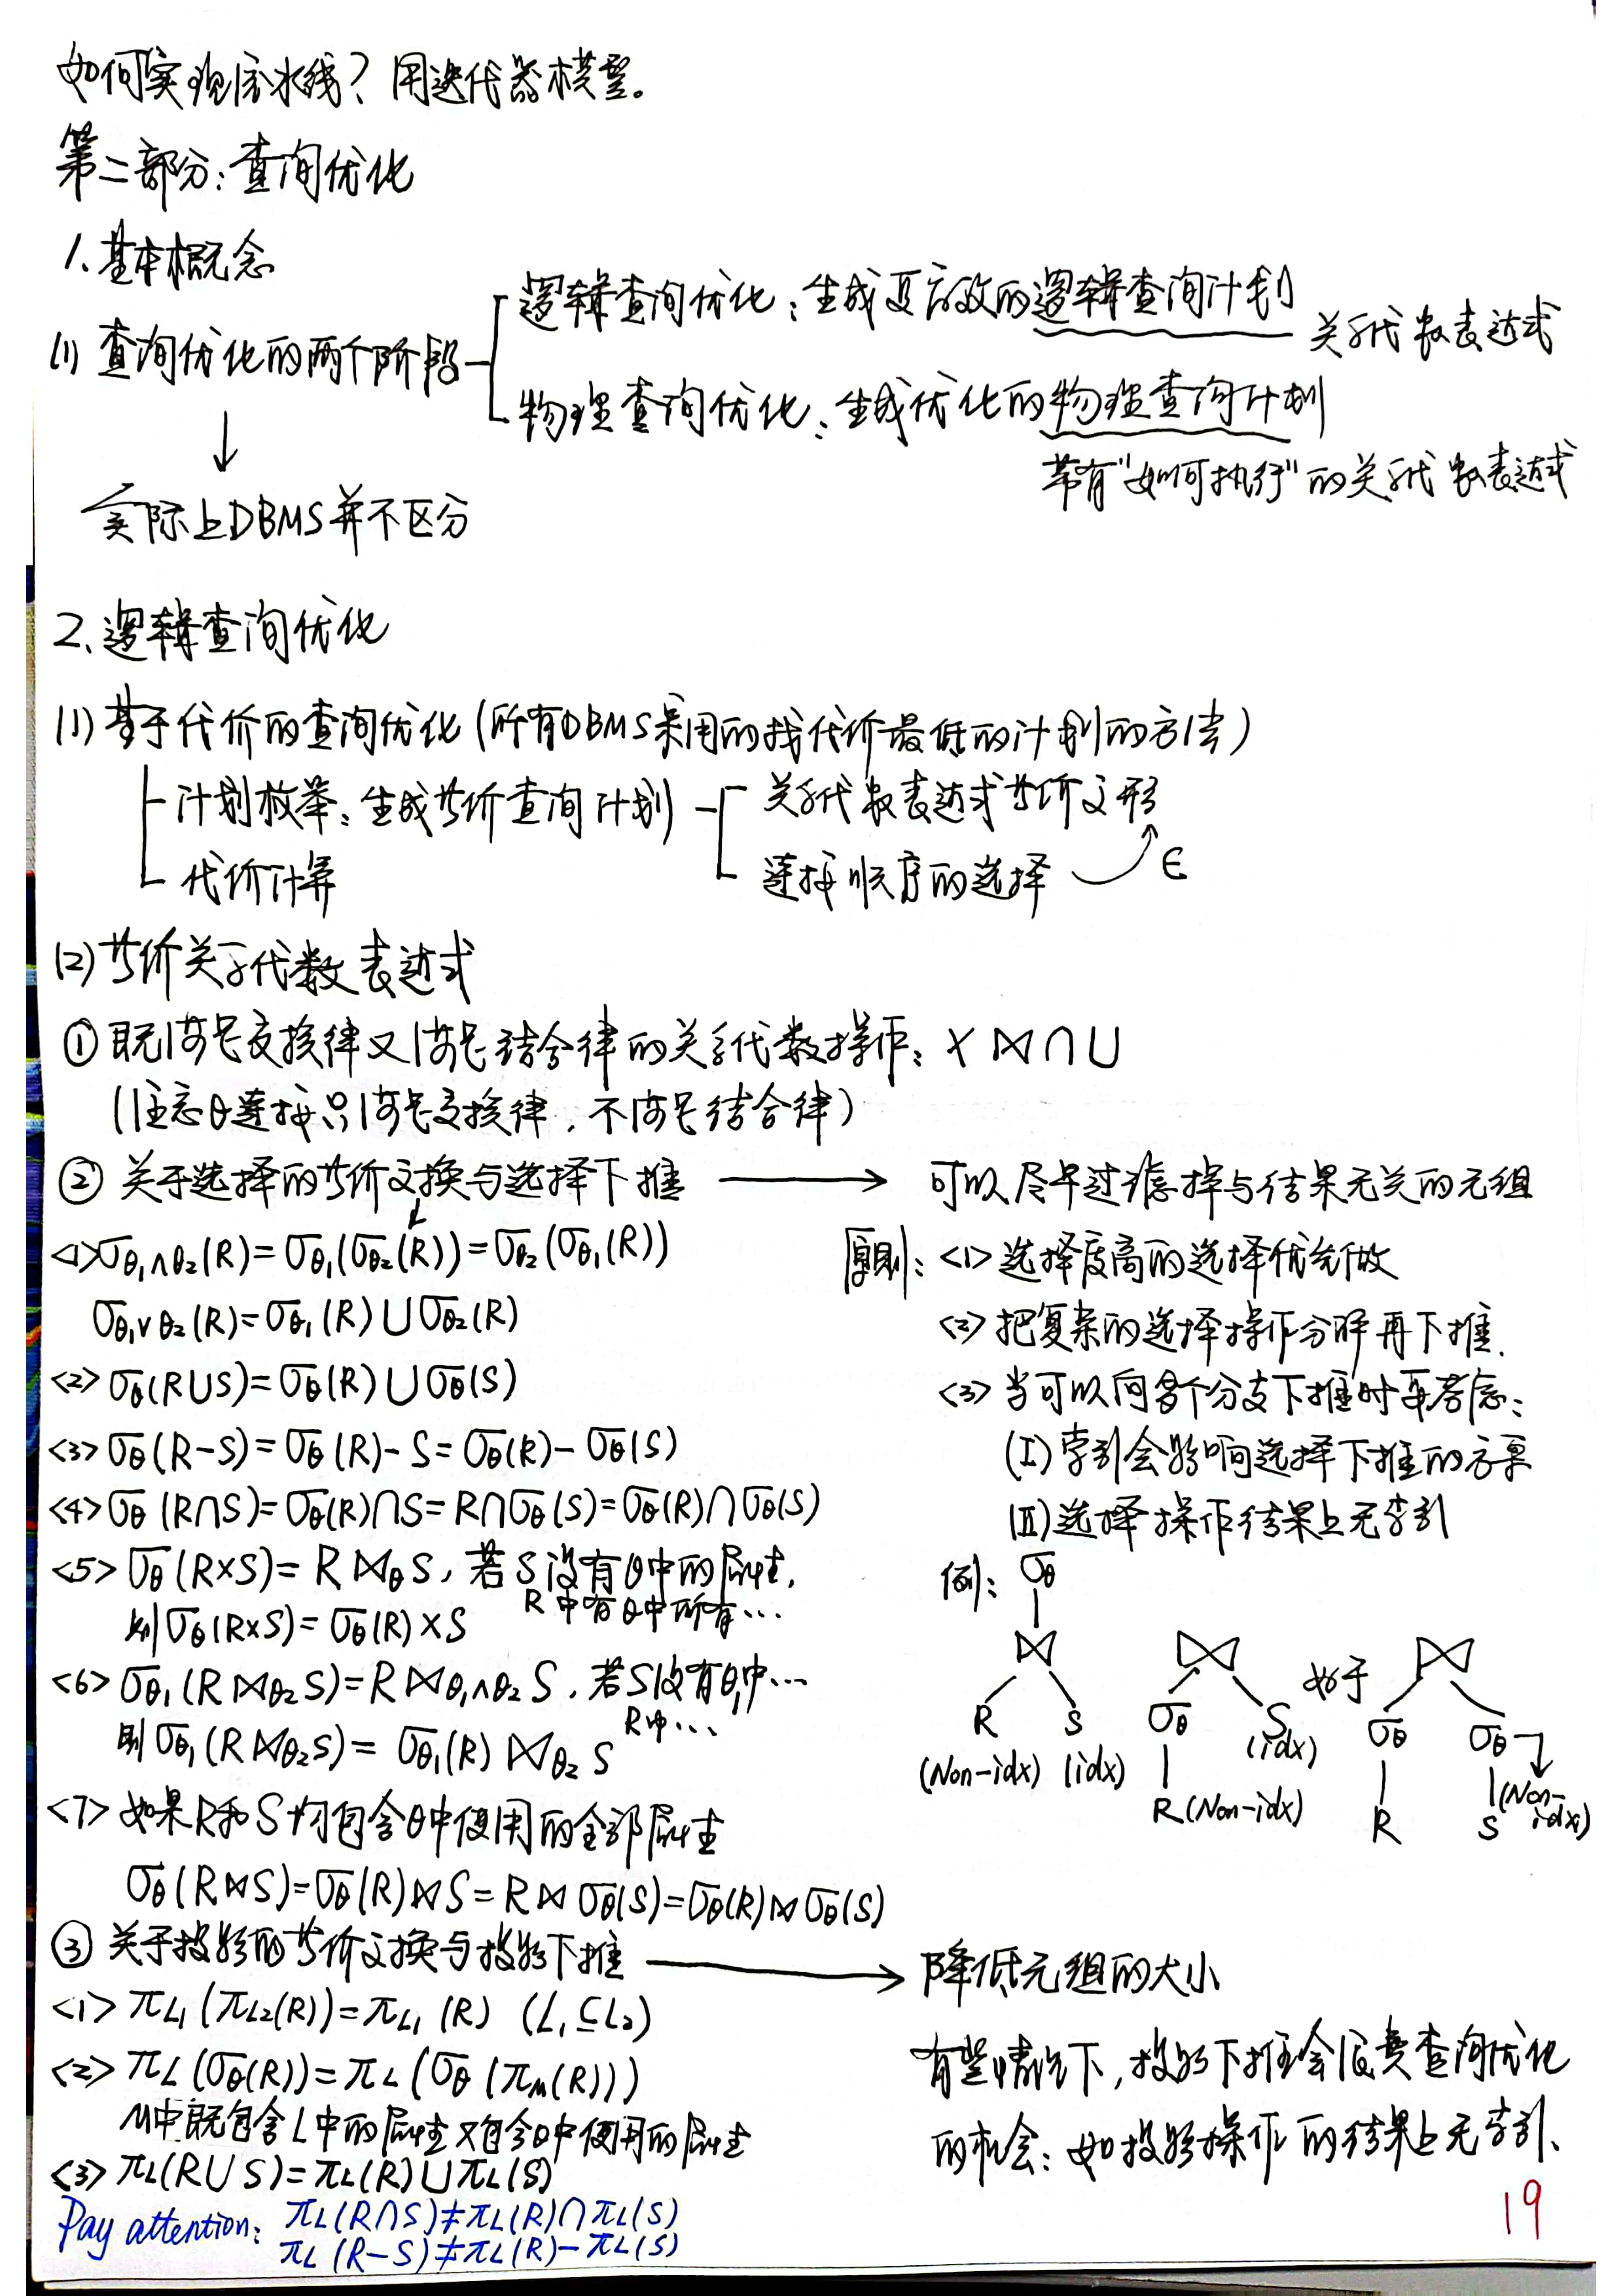 如何实现流水线？用迭代器模型。
第二部分：查询优化
1. 基本概念
(1) 查询优化的两个阶段
逻辑查询优化：生成更高效的逻辑查询计划
关系代数表达式
物理查询优化：生成优化的物理查询计划
带有"如何执行"的关系代数表达式
↓
实际上DBMS并不区分
2. 逻辑查询优化
(1) 基于代价的查询优化（所有DBMS采用的找代价最低的计划的方法）
计划枚举：生成等价查询计划
关系代数表达式等价变形
代价计算
连接顺序的选择 ∈
(2) 等价关系代数表达式
① 既满足交换律又满足结合律的关系代数操作：× ⋈ ∩ ∪
（注意θ连接只满足交换律，不满足结合律）
② 关于选择的等价变换与选择下推 → 可以尽早过滤掉与结果无关的元组
<1> σθ₁∧θ₂(R)=σθ₁(σθ₂(R))=σθ₂(σθ₁(R))
σθ₁∨θ₂(R)=σθ₁(R)∪σθ₂(R)
<2> σθ(R∪S)=σθ(R)∪σθ(S)
<3> σθ(R-S)=σθ(R)-S=σθ(R)-σθ(S)
<4> σθ(R∩S)=σθ(R)∩S=R∩σθ(S)=σθ(R)∩σθ(S)
<5> σθ(R×S)=R⋈θS，若S没有θ中的属性，
R中有θ中所有…
则σθ(R×S)=σθ(R)×S
<6> σθ₁(R⋈θ₂S)=R⋈θ₁∧θ₂S，若S没有θ₁中…
R中…
则σθ₁(R⋈θ₂S)=σθ₁(R)⋈θ₂S
<7> 如果R和S均包含θ中使用的全部属性
σθ(R⋈S)=σθ(R)⋈S=R⋈σθ(S)=σθ(R)⋈σθ(S)
原则：<1> 选择度高的选择优先做
<2> 把复杂的选择操作分解再下推.
<3> 当可以向多个分支下推时要考虑：
(I) 索引会影响选择下推的方案
(II) 选择操作结果上无索引
例： σθ
⋈ ⋈ 好于 ⋈
R S σθ S σθ σθ
(Non-idx) (idx) (idx) (Non-idx)
R(Non-idx) R S
③ 关于投影的等价变换与投影下推 → 降低元组的大小
<1> πL₁(πL₂(R))=πL₁(R) (L₁⊆L₂)
<2> πL(σθ(R))=πL(σθ(πM(R)))
M中既包含L中的属性又包含θ中使用的属性
<3> πL(R∪S)=πL(R)∪πL(S)
有些情况下，投影下推会浪费查询优化
的机会：如投影操作的结果上无索引、
Pay attention: πL(R∩S)≠πL(R)∩πL(S)
πL(R-S)≠πL(R)-πL(S)
19